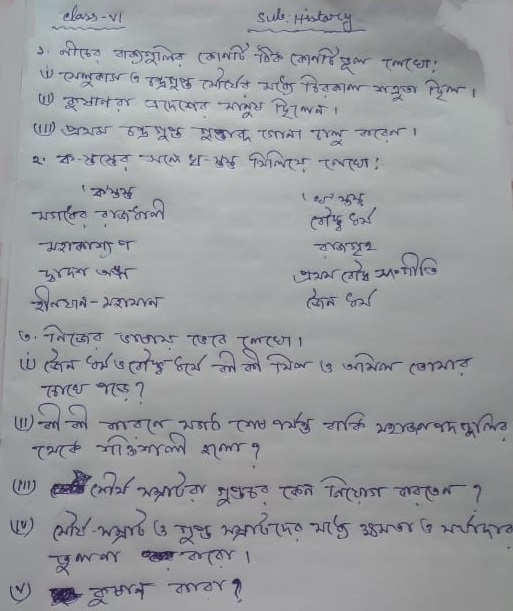 class-VI sub: History
১. নীচের বাক্যগুলির কোনটি ঠিক কোনটি ভুল লেখো:
(i) সেলুকাস ও চন্দ্রগুপ্ত মৌর্যের মধ্যে চিরকাল শত্রুতা ছিল।
(ii) কুষাণরা এদেশের মানুষ ছিলেন।
(iii) প্রথম চন্দ্রগুপ্ত গুপ্তাব্দ গোনা চালু করেন।
২. ক-স্তম্ভের সঙ্গে খ-স্তম্ভ মিলিয়ে লেখো:
'ক' স্তম্ভ 'খ' স্তম্ভ
মগধের রাজধানী বৌদ্ধ ধর্ম
মহাকাশ্যপ রাজগৃহ
দ্বাদশ অঙ্গ প্রথম বৌদ্ধ সংগীতি
হীনযান-মহাযান জৈন ধর্ম
৩. নিজের ভাষায় ভেবে লেখো।
(i) জৈন ধর্ম ও বৌদ্ধ ধর্মে কী কী মিল ও অমিল তোমার
চোখে পড়ে?
(ii) কী কী কারণে মগধ শেষ পর্যন্ত বাকি মহাজনপদগুলির
থেকে শক্তিশালী হলো?
(iii) মৌর্য সম্রাটরা গুপ্তচর কেন নিয়োগ করতেন?
(iv) মৌর্য-সম্রাট ও গুপ্ত সম্রাটদের মধ্যে ক্ষমতা ও মর্যাদার
তুলনা করো।
(v) কুষাণ কারা?